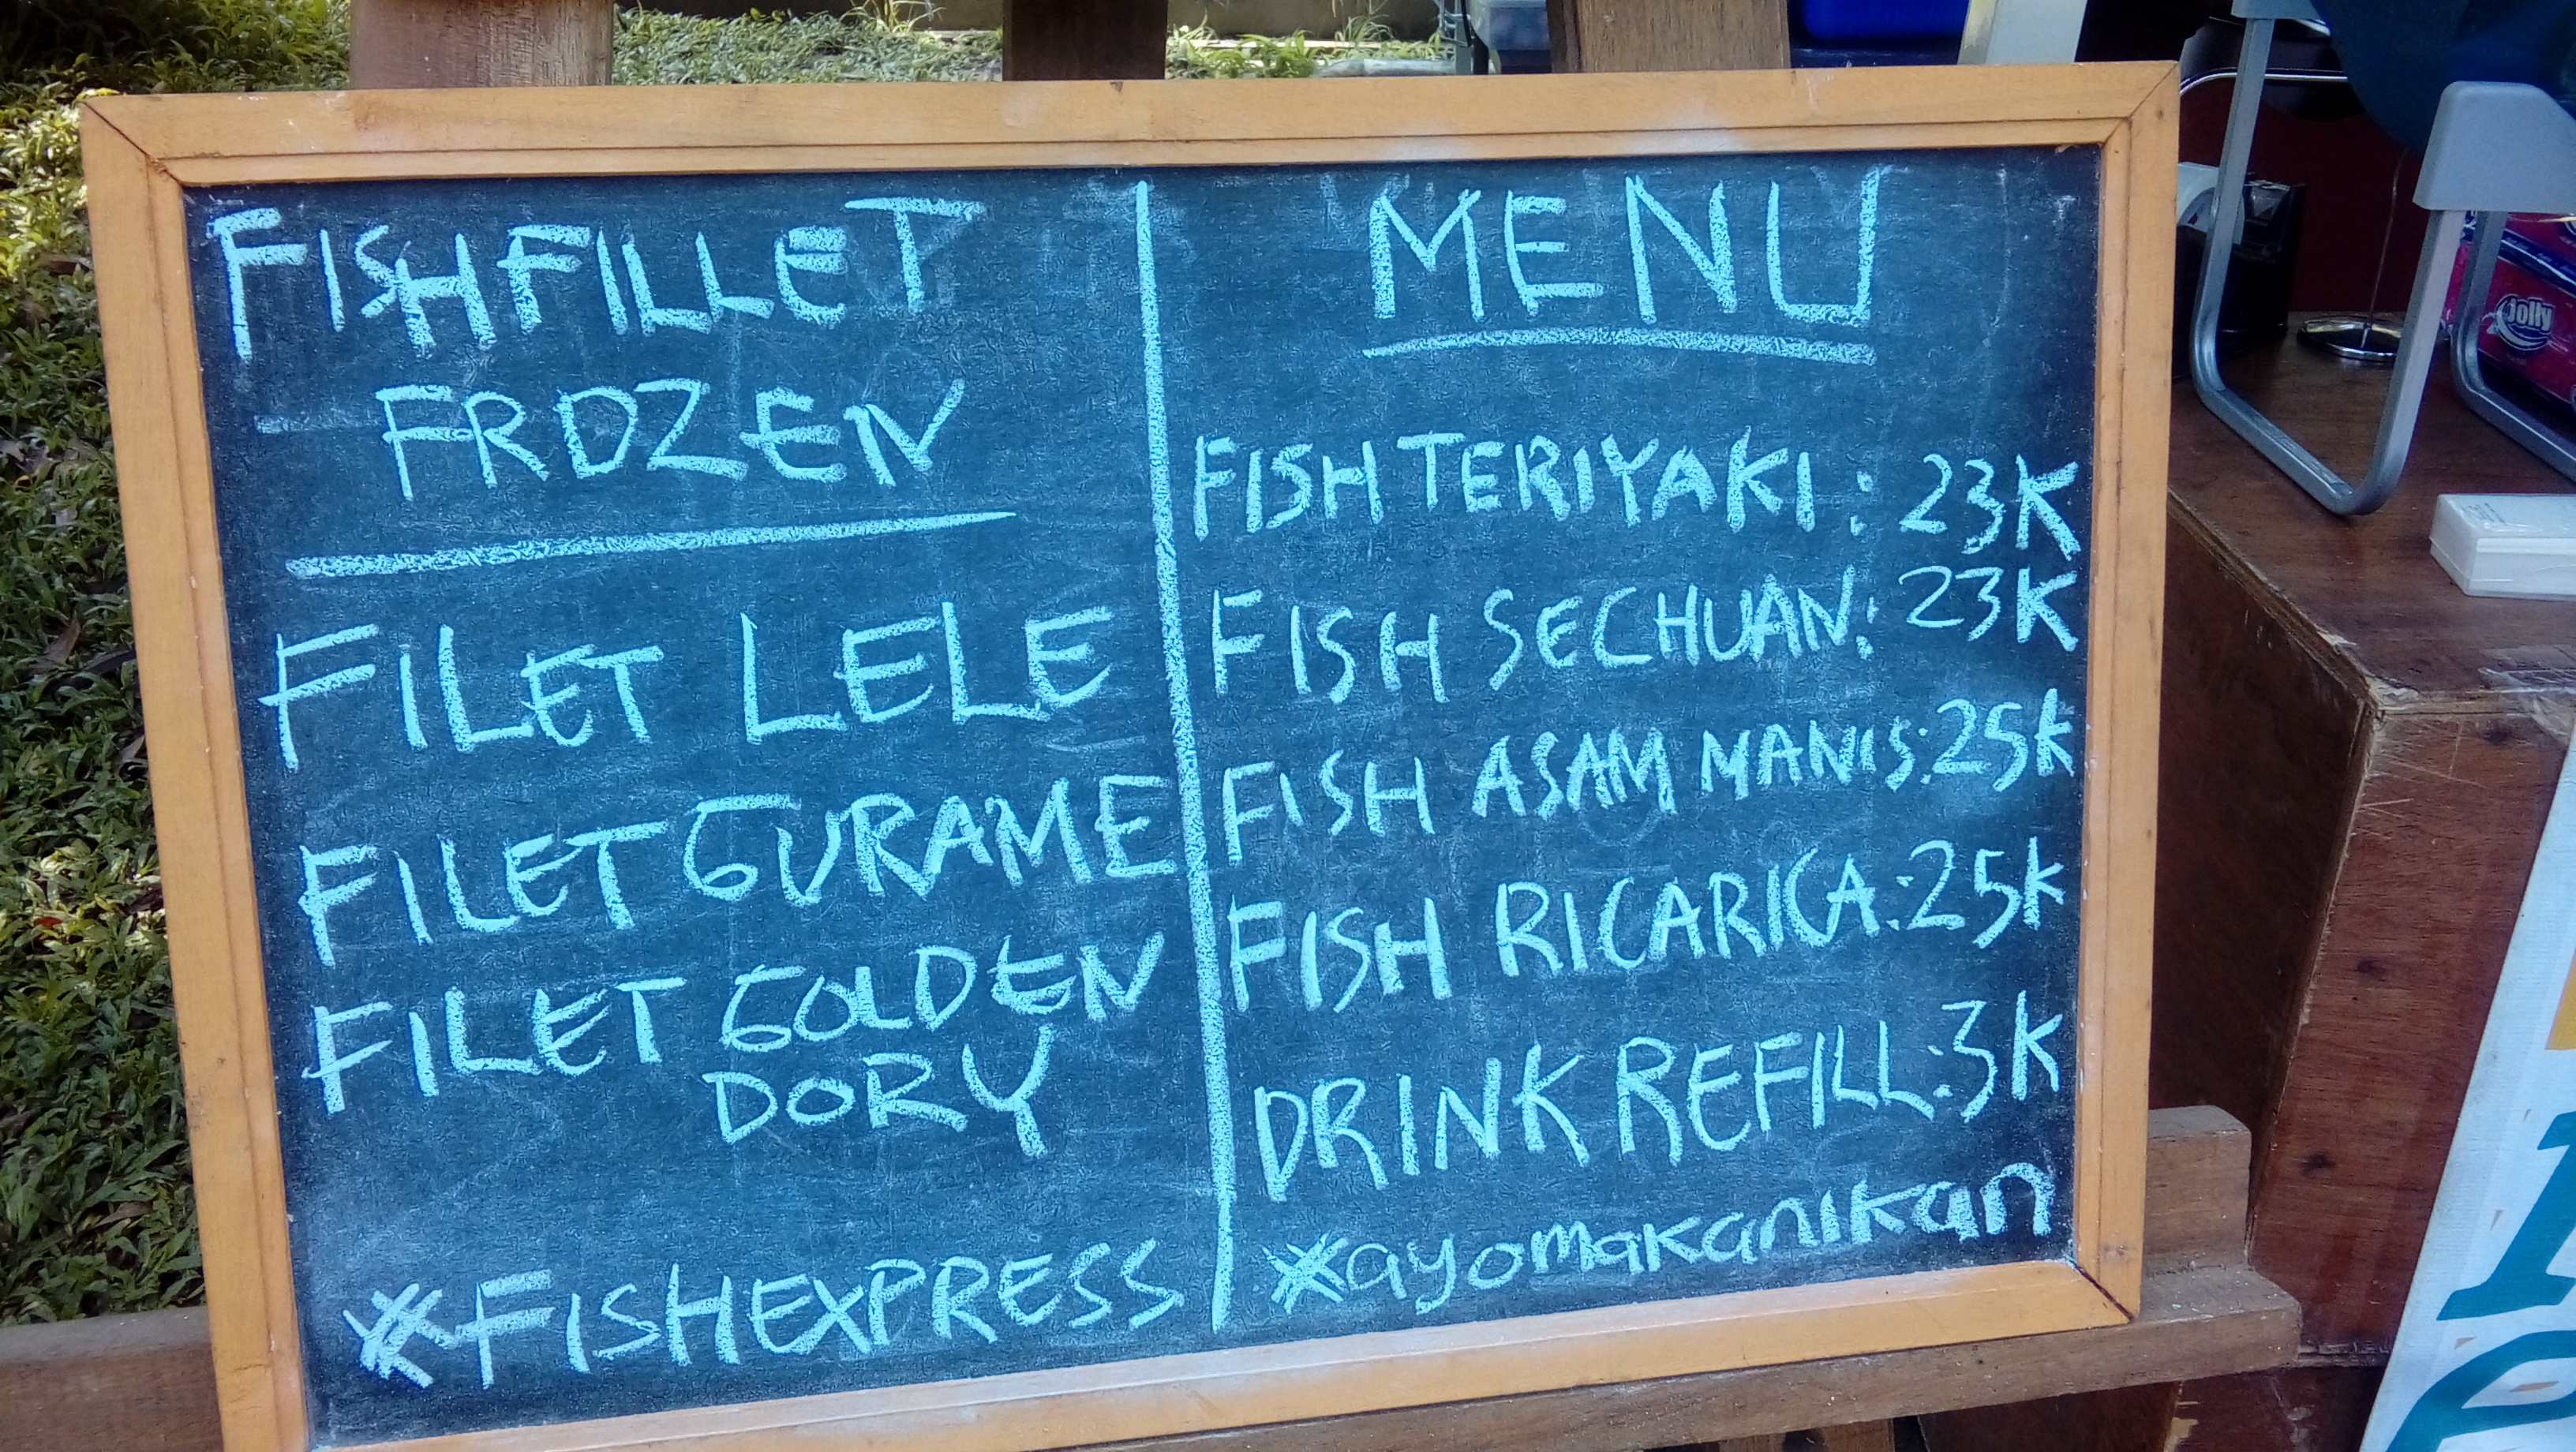 FISH FILLET
FROZEN
FILET LELE
FILET GURAME
FILET GOLDEN
DORY
#FISHEXPRESS
MENU
FISH TERIYAKI : 23K
FISH SECHUAN : 23K
FISH ASAM MANIS : 25k
FISH RICARICA : 25k
DRINK REFILL : 3K
#ayomakanikan
Jolly